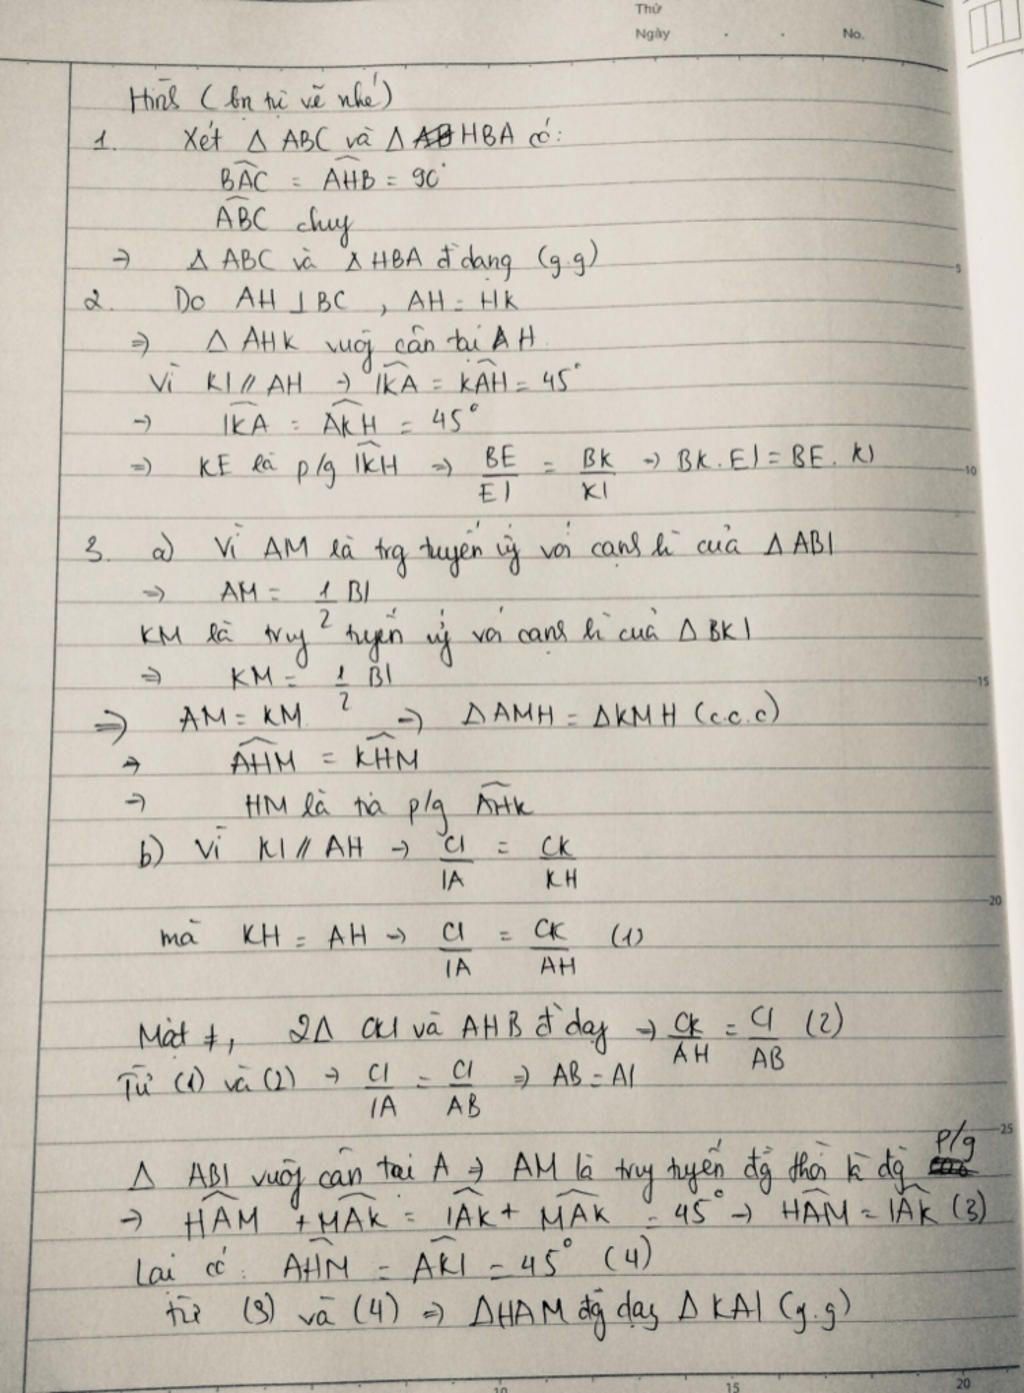 Thứ
Ngày . . No.
Hình (bn tự vẽ nhé)
1. Xét Δ ABC và Δ HBA có:
BAC = AHB = 90°
ABC chug
→ Δ ABC và Δ HBA đ dạng (g.g)
5
2. Do AH ⊥ BC , AH = HK
⇒ Δ AHK vuôg cân tại H
Vì KI // AH → IKA = KAH = 45°
→ IKA = AKH = 45°
⇒ KE là p/g IKH ⇒ BE/EI = BK/KI → BK.EI = BE.KI
10
3. a) Vì AM là trg tuyến ứg với cạnh h` của Δ ABI
⇒ AM = 1/2 BI
KM là trug tuyến ứg với cạnh h` của Δ BKI
⇒ KM = 1/2 BI
15
⇒ AM = KM → ΔAMH = ΔKMH (c.c.c)
→ AHM = KHM
→ HM là tia p/g AHK
b) Vì KI // AH → CI/IA = CK/KH
20
mà KH = AH → CI/IA = CK/AH (1)
Mặt ≠, 2Δ CKI và AHB đ dạg → CK/AH = CI/AB (2)
Từ (1) và (2) → CI/IA = CI/AB ⇒ AB = AI
25
Δ ABI vuôg cân tại A → AM là trug tuyến đg thời là đg p/g
→ HAM + MAK = IAK + MAK = 45° → HAM = IAK (3)
Lại có: AHM = AKI = 45° (4)
từ (3) và (4) ⇒ ΔHAM đg dạg Δ KAI (g.g)
10 15 20